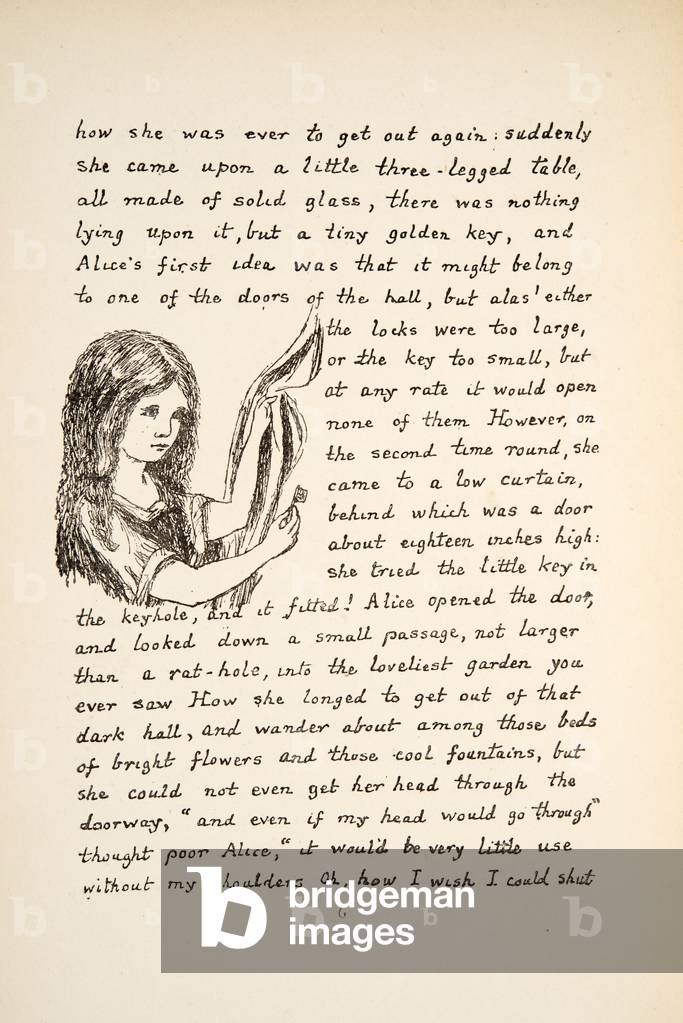 how she was ever to get out again: suddenly
she came upon a little three-legged table,
all made of solid glass, there was nothing
lying upon it, but a tiny golden key, and
Alice's first idea was that it might belong
to one of the doors of the hall, but alas! either
the locks were too large,
or the key too small, but
at any rate it would open
none of them However, on
the second time round, she
came to a low curtain,
behind which was a door
about eighteen inches high:
she tried the little key in
the keyhole, and it fitted! Alice opened the door,
and looked down a small passage, not larger
than a rat-hole, into the loveliest garden you
ever saw How she longed to get out of that
dark hall, and wander about among those beds
of bright flowers and those cool fountains, but
she could not even get her head through the
doorway, "and even if my head would go through"
thought poor Alice, "it would be very little use
without my shoulders Oh, how I wish I could shut
6
b bridgeman
images